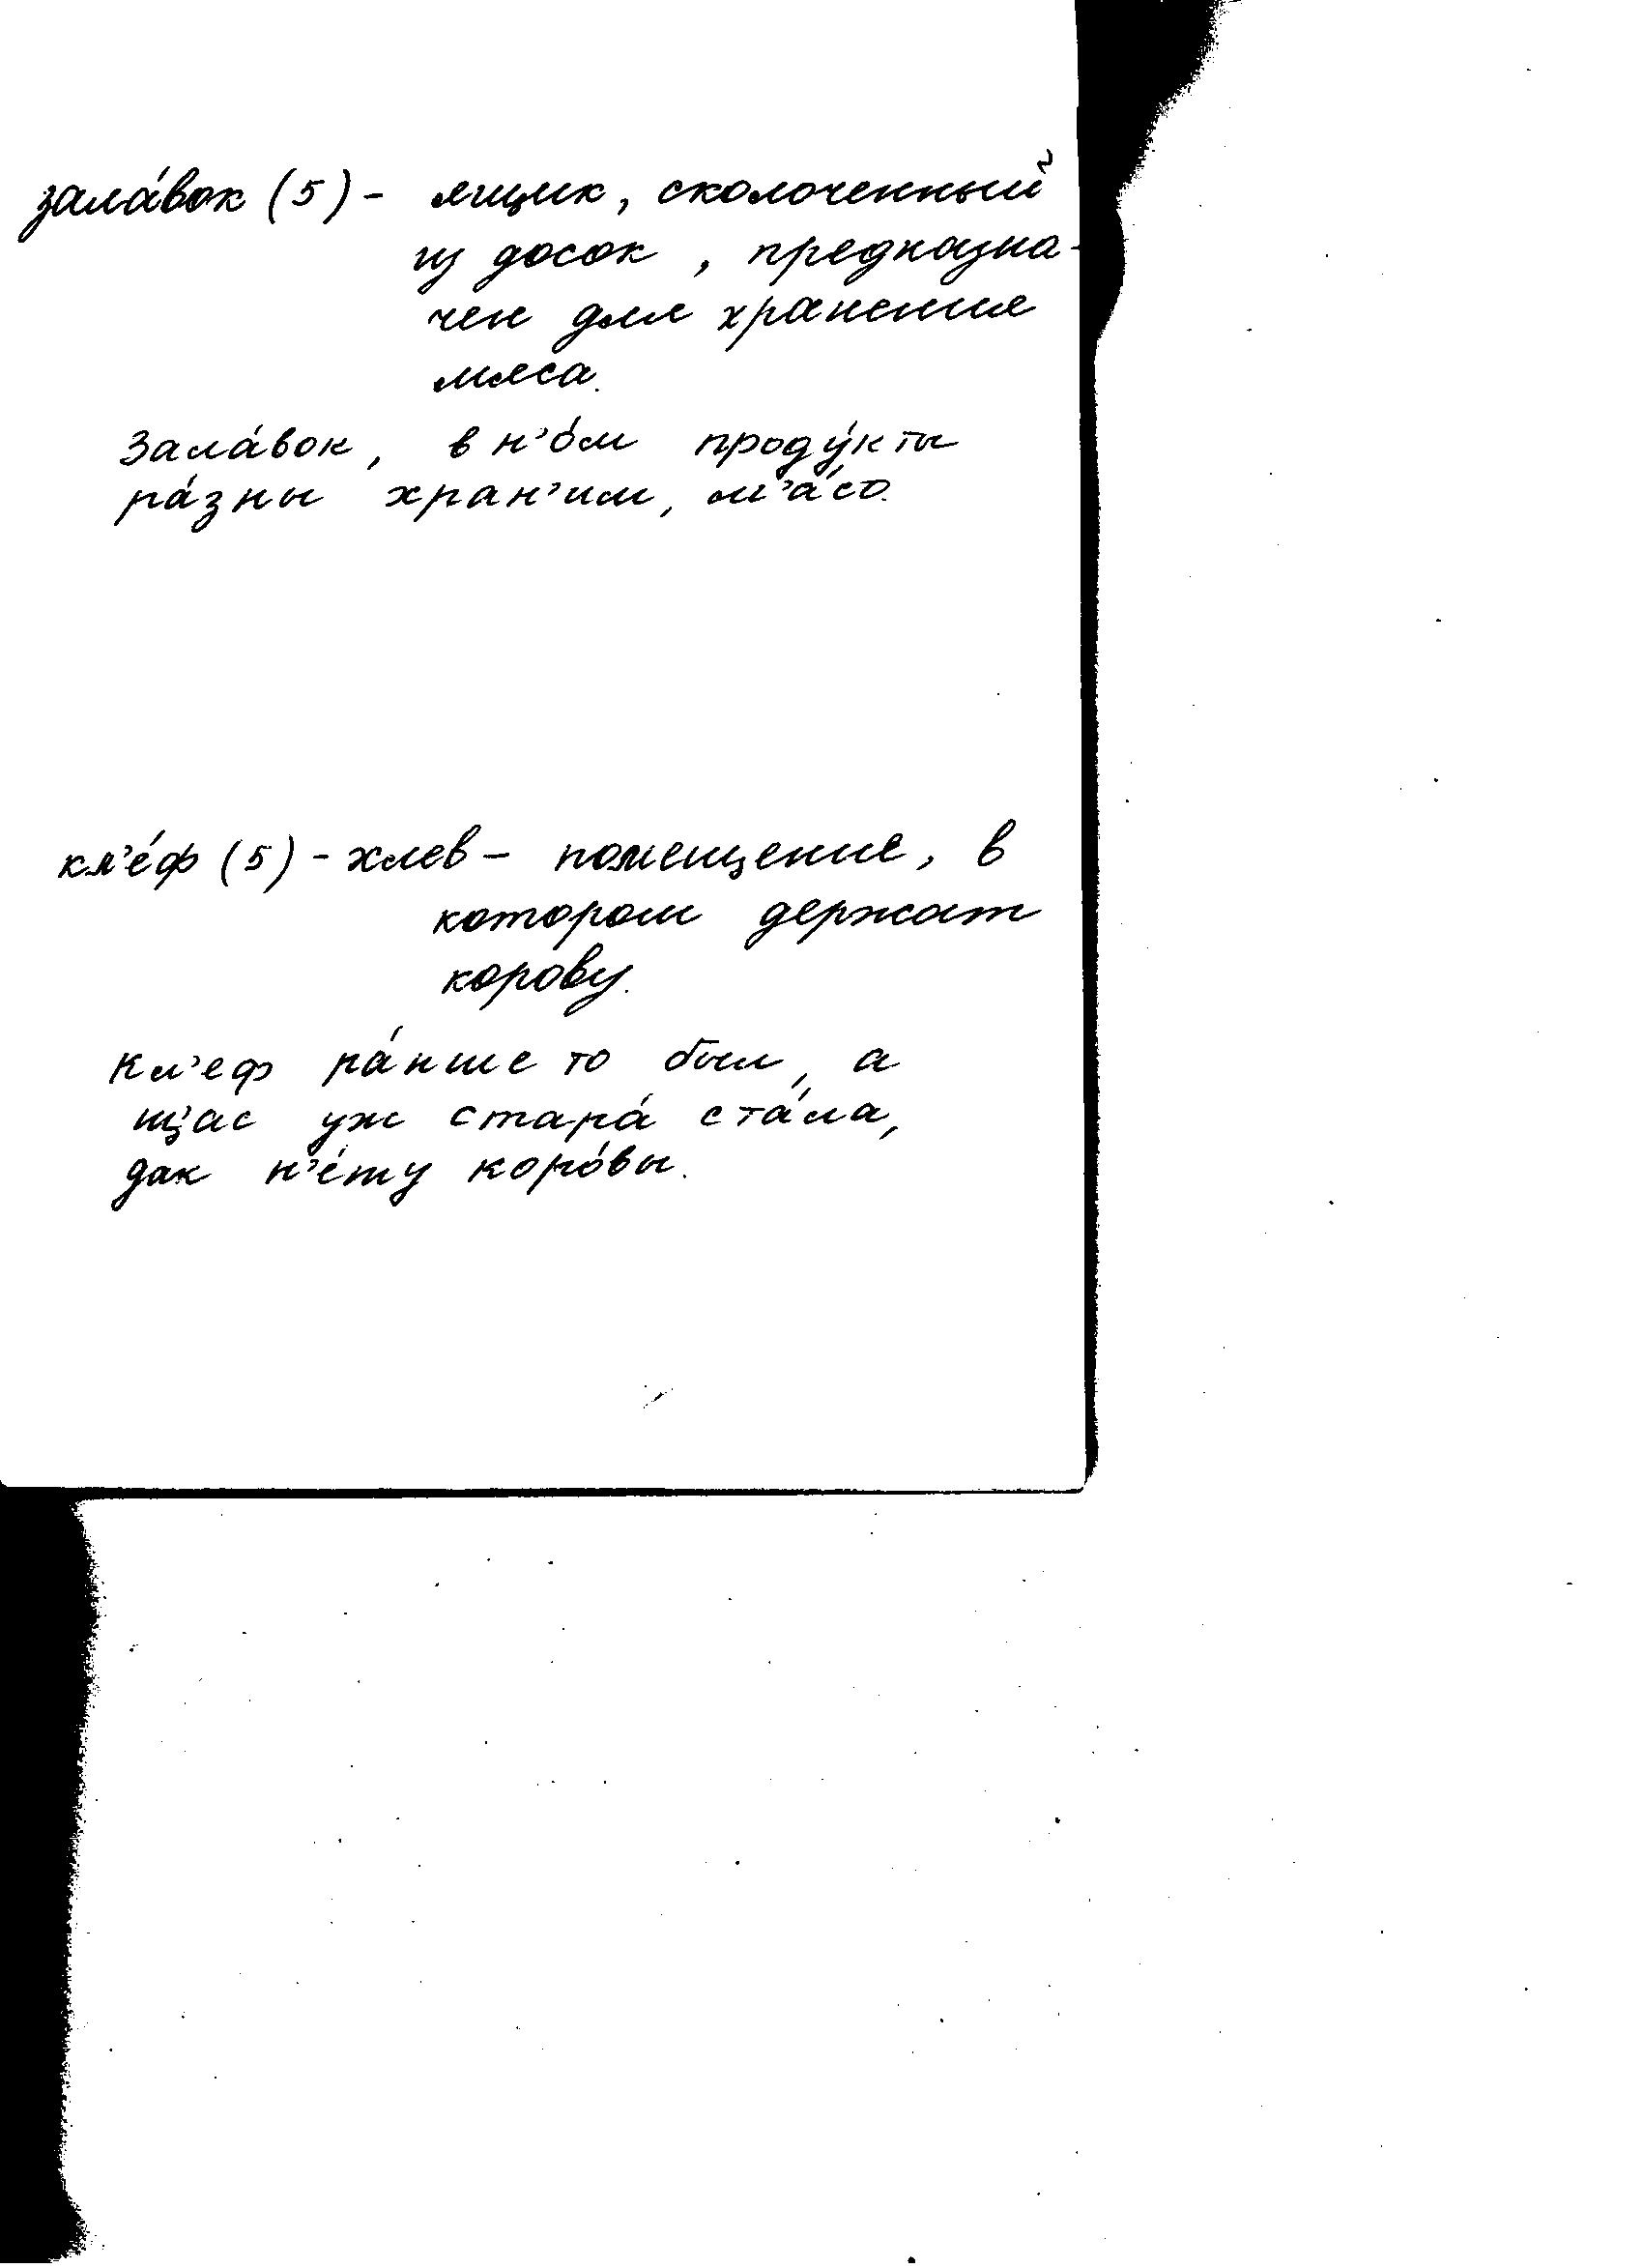 зала́вок (5) - ящик, сколоченный
из досок , предназна-
чен для хранения
мяса.
Зала́вок, в н'о́м проду́кты
ра́зны хран'им, м'а́со.
кл'е́ф (5) - хлев - помещение, в
котором держат
корову.
Кл'еф ра́ньше то был, а
щ'ас уж стара́ ста́ла,
дак н'е́ту коро́вы.